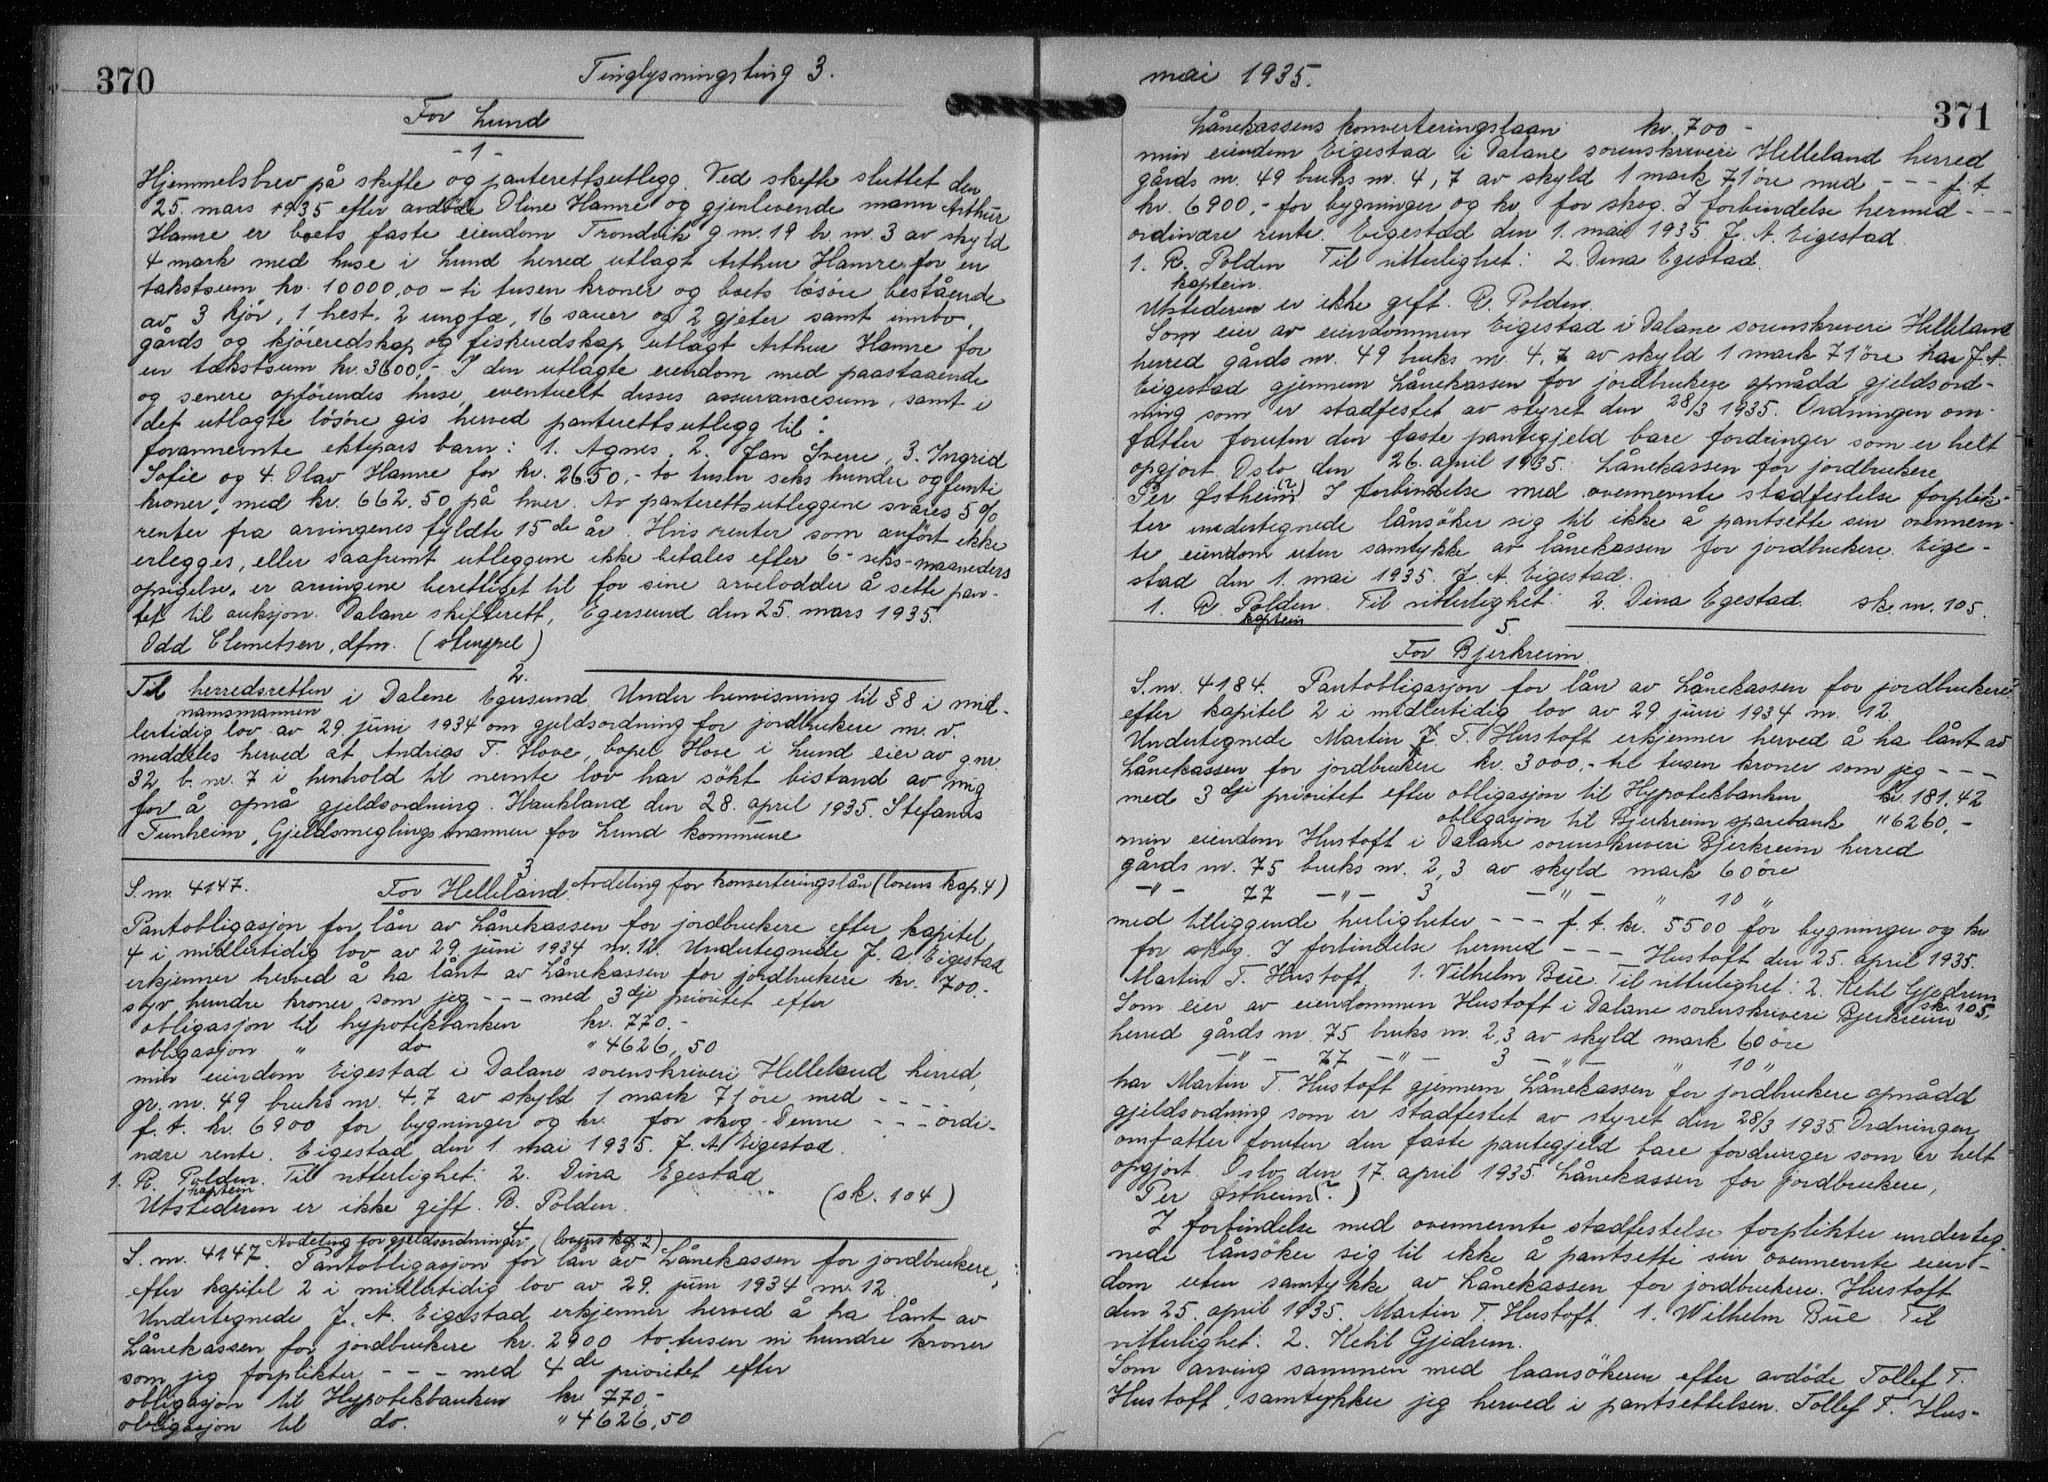 370
Tinglysningsting 3.
For Lund
- 1 -
Hjemmelsbrev på skifte og panterettsutlegg. Ved skifte sluttet den
25. mars 1935 efter avdøde Oline Hamre og gjenlevende mann Arthur
Hamre er boets faste eiendom Trondvik g.nr. 19 br. nr. 3 av skyld
4 mark med huse i Lund herred utlagt Arthur Hamre for en
takstsum kr. 10000,00 - ti tusen kroner og boets løsöre bestående
av 3 kjör, 1 hest, 2 ungfæ, 16 sauer og 2 gjeter samt innbo,
gårds og kjøreredskap og fiskeredskap utlagt Arthur Hamre for
en takstsum kr. 3600,- I den utlagte eiendom med paastaaende
og senere opförendes huse, eventuelt disses assurancesum, samt i
det utlagte løsöre gis herved panterettsutlegg til:
forannevnte ektepars barn: 1. Agnes, 2. Jan Sverre, 3. Ingrid
Sofie og 4. Olav Hamre for kr. 2650,- to tusen seks hundre og femti
kroner, med kr. 662.50 på hver. Av panterettsutleggene svares 5 %
renter fra arvingenes fyldte 15 de år. Hvis renter som anfört ikke
erlegges, eller saafremt utleggene ikke betales efter 6 - seks - maaneders
opsigelse, er arvingene berettiget til for sine arvelodder å sette pan-
tet til auksjon. Dalane skifterett, Egersund den 25. mars 1935.
Odd Clemetsen, dfm. (stempel)
2.
Til herredsretten i Dalene Egersund. Under henvisning til § 8 i mid-
namsmannen
lertidig lov av 29. juni 1934 om gjeldsordning for jordbrukere m. v.
meddeles herved at Andreas T. Hove, bopel Hove i Lund eier av g.nr.
32 b. nr. 7 i henhold til nevnte lov har sökt bistand av mig
for å opnå gjeldsordning. Haukland den 28. april 1935. Stefanus
Tunheim, Gjeldsmeglingsmannen for Lund kommune
3
S.nr. 4147. For Helleland. Avdeling for konverteringslån (lovens kap. 4)
Pantobligasjon for lån av Lånekassen for jordbrukere efter kapitel
4 i midlertidig lov av 29. juni 1934 nr. 12. Undertegnede J. A. Eigestad
erkjenner herved å ha lånt av Lånekassen for jordbrukere kr. 700.-
syv hundre kroner, som jeg - - - med 3 dje prioritet efter
obligasjon til hypotekbanken kr. 770.-
obligasjon " do " 4626,50
min eiendom Eigestad i Dalane sorenskriveri Helleland herred,
gr. nr. 49 bruks nr. 4,7 av skyld 1 mark 71 öre, med - - - -
f. t. kr. 6900 for bygninger og kr. for skog. Denne - - - ordi-
nære rente. Eigestad den 1 mai 1935. J. A. Eigestad.
1. R. Polden. Til vitterlighet: 2. Dina Egestad
kaptein
Utstederen er ikke gift. R. Polden. (sk. 104)
4
S. nr. 4147. Avdeling for gjeldsordninger (lovens kap. 2)
Pantobligasjon for lån av Lånekassen for jordbrukere,
efter kapitel 2 i midlertidig lov av 29. juni 1934 nr. 12.
Undertegnede J. A. Eigestad erkjenner herved å ha lånt av
Lånekassen for jordbrukere kr. 2900 to tusen ni hundre kroner
som jeg forplikter - - - med 4 de prioritet efter
obligasjon til Hypotekbanken kr 770,-
obligasjon til do. " 4626,50
mai 1935.
371
Lånekassens konverteringslaan kr. 700 -
min eiendom Eigestad i Dalane sorenskriveri Helleland herred
gårds nr. 49 bruks nr. 4, 7 av skyld 1 mark 71 öre med - - - f. t.
kr. 6900,- for bygninger og kr for skog. I forbindelse hermed - - -
ordinære rente. Eigestad den 1. mai 1935. J. A. Eigestad.
1. R. Polden Til vitterlighet: 2. Dina Egestad.
kaptein.
Utstederen er ikke gift. R. Polden.
Som eier av eiendommen Eigestad i Dalane sorenskriveri Helleland
herred gårds nr. 49 bruks nr. 4, 7 av skyld 1 mark 71 öre har J. A.
Eigestad gjennem Lånekassen for jordbrukere opnådd gjeldsord-
ning som er stadfestet av styret den 28/3 1935. Ordningen om-
fatter foruten den faste pantegjeld bare fordringer som er helt
opgjort. Oslo, den 26. april 1935. Lånekassen for jordbrukere
Per Østheim (?) I forbindelse med ovennevnte stadfestelse forplik-
ter undertegnede lånsöker sig til ikke å pantsette sin ovennevn-
te eiendom uten samtykke av lånekassen for jordbrukere. Eige-
stad den 1. mai 1935. J. A. Eigestad.
1. R. Polden. Til vitterlighet: 2. Dina Egestad. sk. nr. 105.
kaptein
5.
For Bjerkreim
S.nr. 4184. Pantobligasjon for lån av Lånekassen for jordbrukere
efter kapitel 2 i midlertidig lov av 29 juni 1934 nr. 12.
Undertegnede Martin T. Hustoft erkjenner herved å ha lånt av
Lånekassen for jordbrukere kr. 3000,- tre tusen kroner som jeg - - -
med 3 dje prioritet efter obligasjon til Hypotekbanken kr. 181,42
obligasjon til Bjerkreim sparebank " 6260,-
min eiendom Hustoft i Dalane sorenskriveri Bjerkreim herred
gårds nr. 75 bruks nr. 2, 3 av skyld mark 60 öre
- " - 77 - " - 3 - " - " 10 "
med tilliggende herligheter - - - f. t. kr. 5500 for bygninger og kr
for skog. I forbindelse hermed - - - Hustoft den 25. april 1935.
Martin T. Hustoft. 1. Vilhelm Bue Til vitterlighet: 2. Ketil Gjedrem
sk. 105,
Som eier av eiendommen Hustoft i Dalane sorenskriveri Bjerkreim
herred gårds nr. 75 bruks nr. 2,3 av skyld mark 60 öre
- " - 77 - " - 3 - " - " 10 "
har Martin T. Hustoft gjennem Lånekassen for jordbrukere opnådd
gjeldsordning som er stadfestet av styret den 28/3 1935. Ordningen
omfatter foruten den faste pantegjeld bare fordringer som er helt
opgjort. Oslo, den 17. april 1935. Lånekassen for jordbrukere,
Per Østheim (?)
I forbindelse med ovennevnte stadfestelse forplikter underteg-
nede lånsöker sig til ikke å pantsette sin ovennevnte eien-
dom uten samtykke av Lånekassen for jordbrukere. Hustoft
den 25. april 1935. Martin T. Hustoft. 1. Wilhelm Bue. Til
vitterlighet: 2. Ketil Gjedrem.
Som arving sammen med laansökeren efter avdöde Tollef T.
Hustoft, samtykker jeg herved i pantsettelsen. Tollef T. Hus-